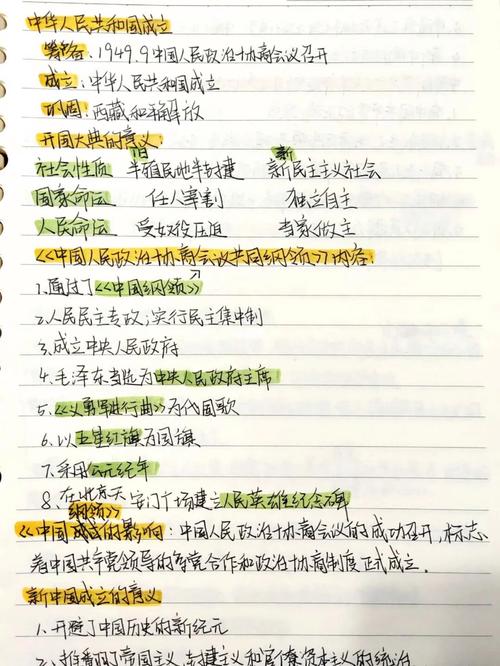 中华人民共和国成立
筹备:1949.9中国人民政治协商会议召开
成立:中华人民共和国成立
巩固:西藏和平解放
开国大典的意义:
旧 新
社会性质 半殖民地半封建 新民主主义社会
国家命运 任人宰割 独立自主
人民命运 受奴役压迫 当家做主
《中国人民政治协商会议共同纲领》内容:
1.通过了《中国纲领》
2.人民民主专政;实行民主集中制
3.成立中央人民政府
4.毛泽东当选为中央人民政府主席
5.《义勇军进行曲》为代国歌
6.以五星红旗为国旗
7.采用公元纪年
8.在北京天安门广场建立人民英雄纪念碑
纲领》
《中国成立的影响:中国人民政治协商会议的成功召开,标志
着中国共产党领导的多党合作和政治协商制度正式成立.
新中国成立的意义
1.开辟了中国历史的新纪元
2.推翻了帝国主义,封建主义和官僚资本主义的统治